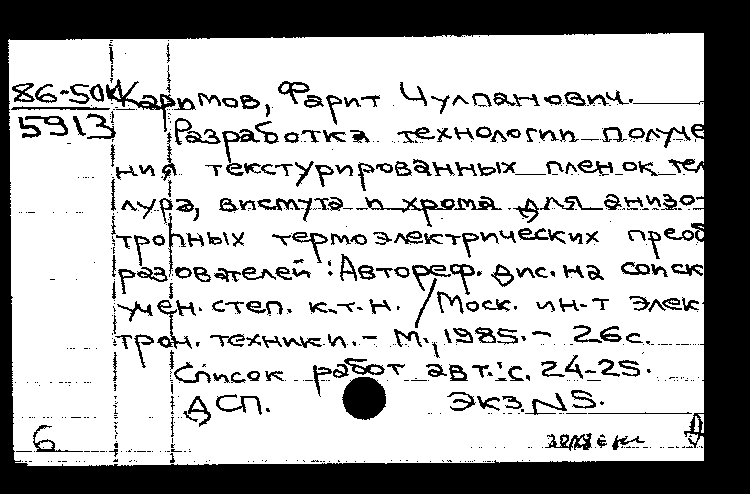 86-50к Каримов, Фарит Чулпанович.
5913 Разработка технологии получе
ния текстурированных пленок тел
лура, висмута и хрома для анизо-
тропных термоэлектрических преоб
разователей: Автореф. дис. на соиск
учен. степ. к.т.н. / Моск. ин-т элек-
трон. техники. - М., 1985. - 26с.
Список работ авт.: с. 24-25.
ДСП. ЭКЗ. N5.
6 Д